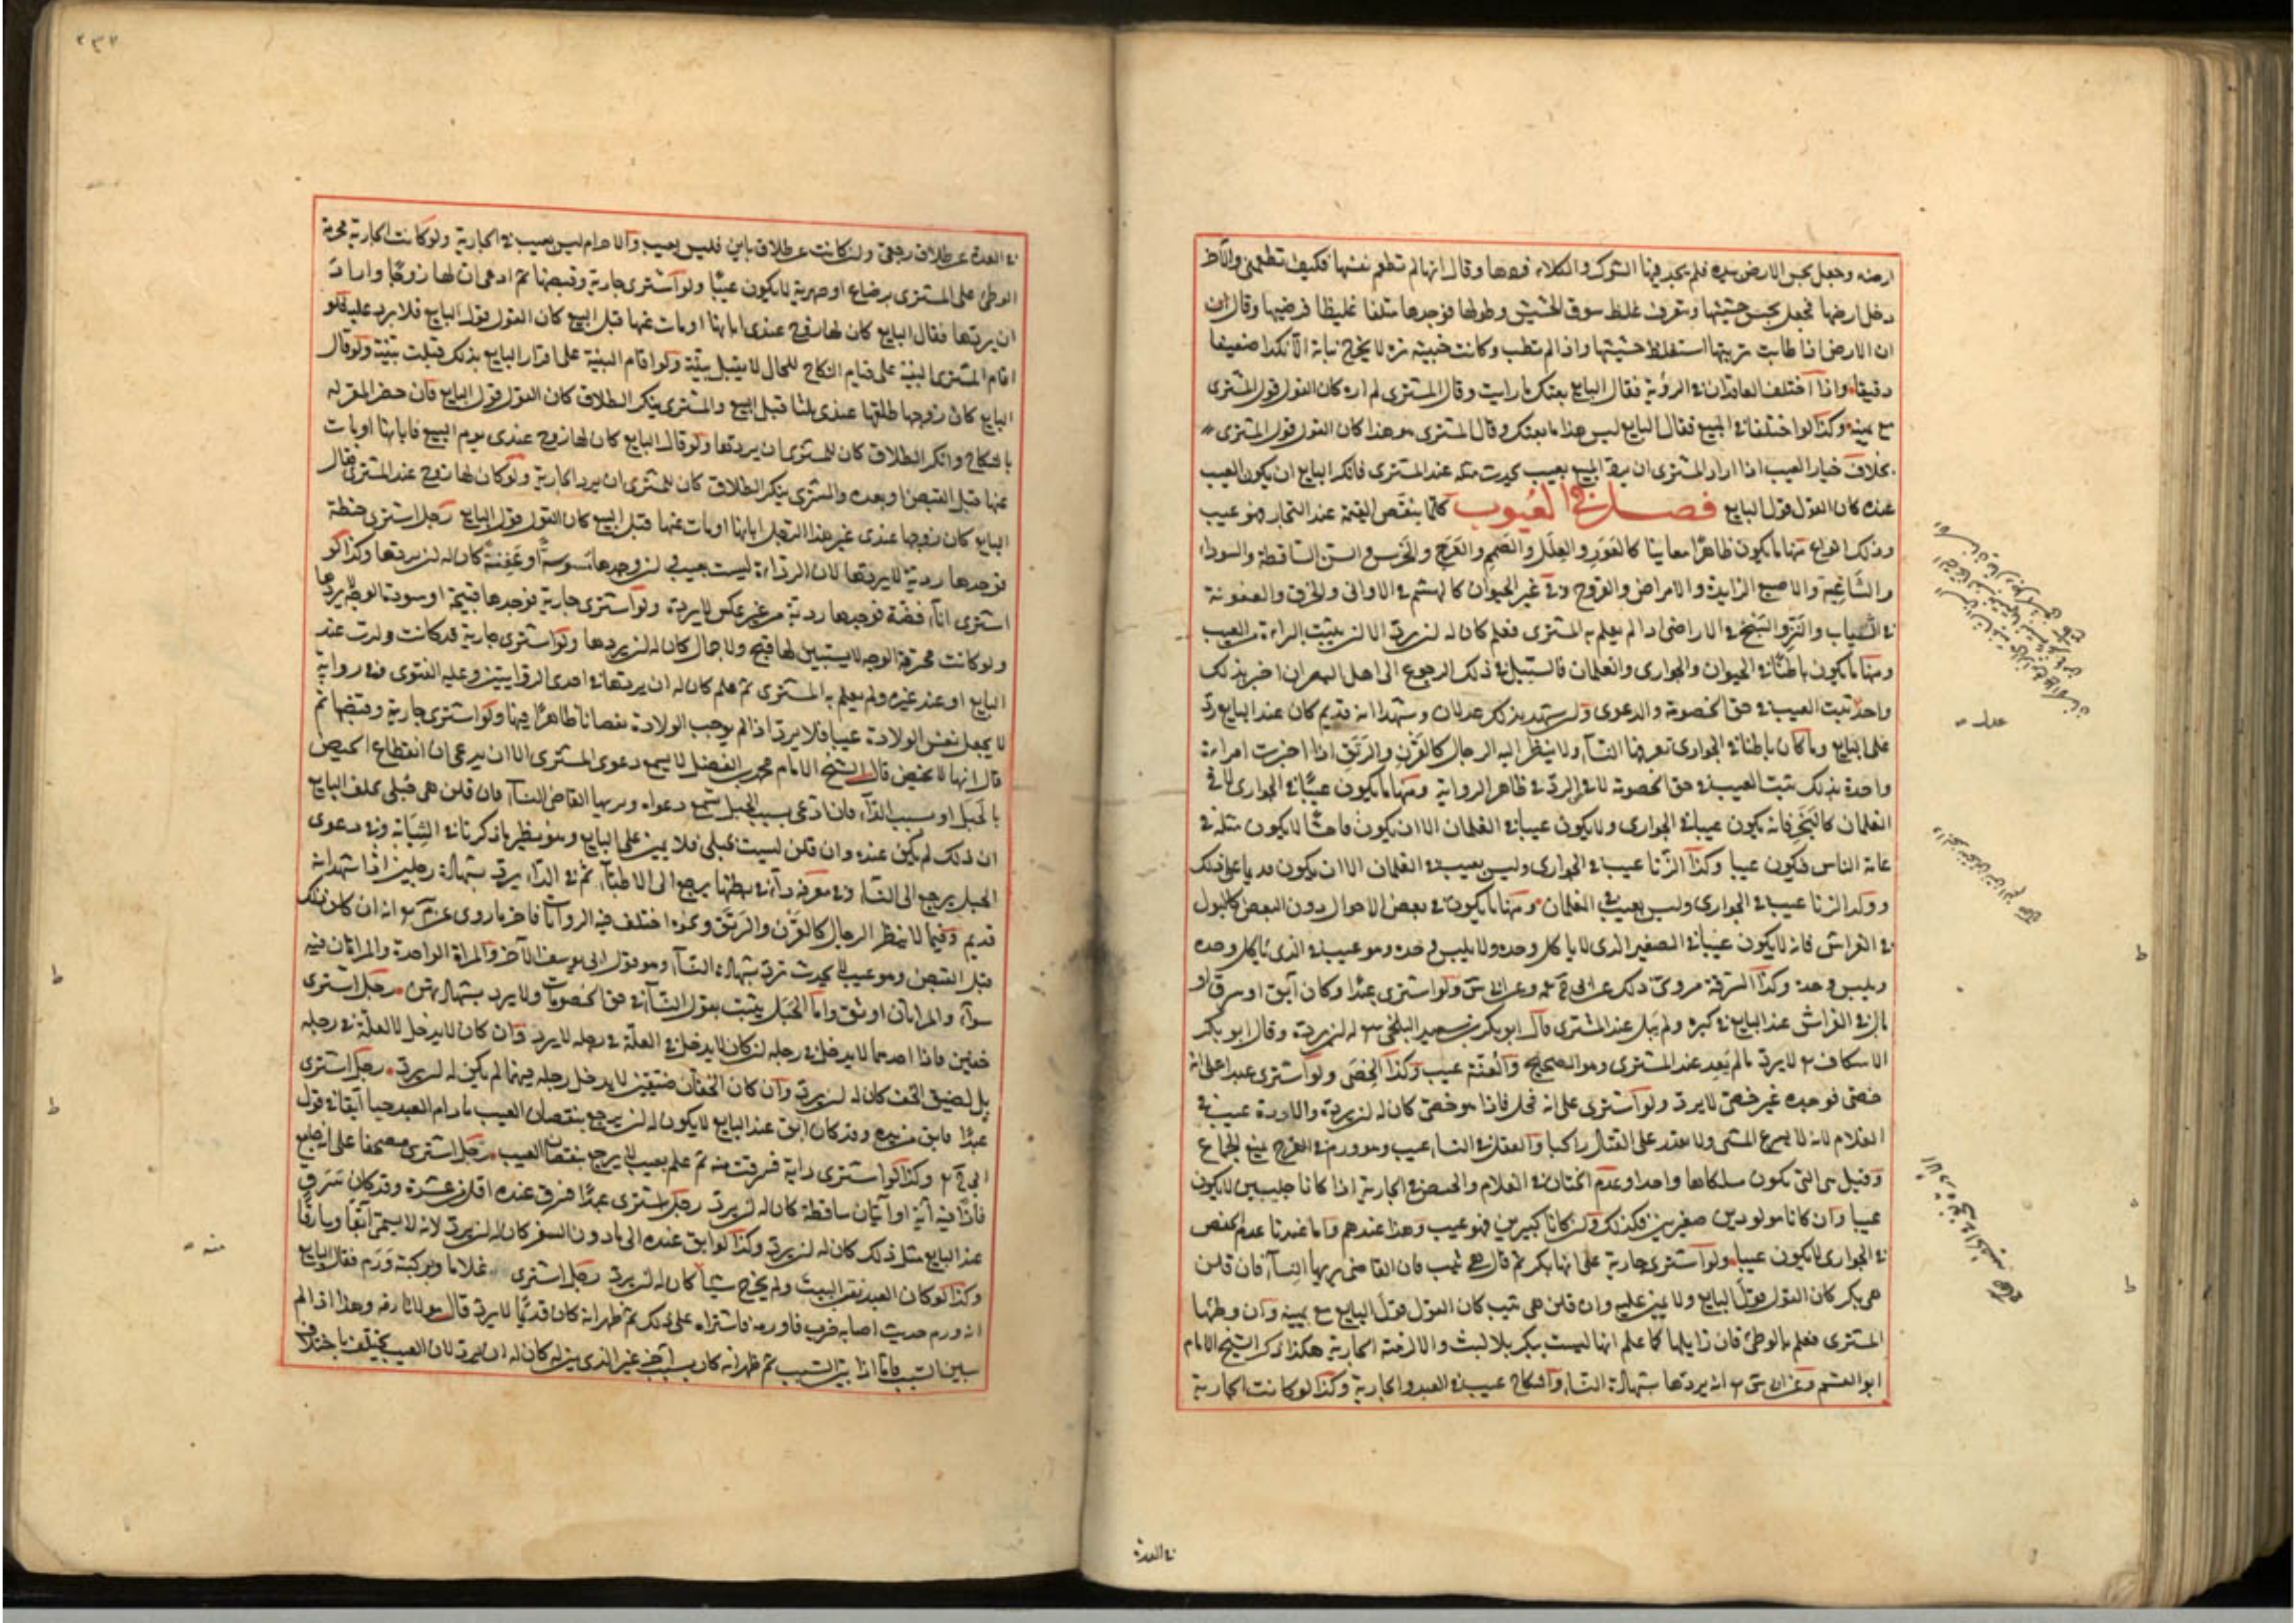 ارضه وجعل يجس الارض بيده فلم يجد فيها الشوك والكلاء فردها وقال انها لم تطعم نفسها فكيف تطعمني والآخر
دخل ارضها فجعل يجس حشيشها ويتعرف غلظ سوق الحشيش وطولها فوجدها ملتفا غليظا فرضيها وقال
ان الارض اذا طابت تربتها استغلظ حشيشها واذا لم تطب وكانت خبيثة نزة لا يخرج نباته الا نكدا ضعيفا
دقيقا واذا اختلف العاقدان في الرؤية فقال البايع بعتك ما رايت وقال المشترى لم اره كان القول قول المشترى
مع يمينه وكذا لو اختلفا في المبيع فقال البايع ليس هذا ما بعتك وقال المشترى هو هذا كان القول قول المشترى
بخلاف خيار العيب اذا اراد المشترى ان يرد المبيع بعيب يحدث مثله عند المشترى فانكر البايع ان يكون العيب
عنده كان القول قول البايع فصل في العيوب كلما ينقص القيمة عند التجار فهو عيب
وذلك انواع منها ما يكون ظاهرا معاينا كالعور والعلل والصمم والعرج والخرس والسن الساقطة والسوداء
والشاغية والاصبع الزايدة والامراض والقروح وفي غير الحيوان كالهشم في الاوانى والخرق والعفونة
في الثياب والنز والسبخ في الاراضى اذا لم يعلم به المشترى فعلم كان له ان يرد الا ان يثبت البراءة من العيب
ومنها ما يكون باطنا في الحيوان والجوارى والغلمان فالسبيل في ذلك الرجوع الى اهل البصر ان اخبر بذلك
واحد ثبت العيب في حق الخصومة والدعوى وان شهد بذلك عدلان وشهدا انه قديم كان عند البايع رد
على البايع وما كان باطنا في الجوارى تعرفها النساء ولا ينظر اليه الرجال كالقرن والرتق اذا اخبرت امراءة
واحدة بذلك ثبت العيب في حق الخصومة لا في الرد في ظاهر الرواية ومنها ما يكون عيبا في الجوارى لا في
الغلمان كالبخر فانه يكون عيبا في الجوارى ولا يكون عيبا في الغلمان الا ان يكون فاحشا لا يكون مثله في
عامة الناس فيكون عيبا وكذا الزنا عيب في الجوارى وليس بعيب في الغلمان الا ان يكون مدمنا على ذلك
وولد الزنا عيب في الجوارى وليس بعيب في الغلمان ومنها ما يكون في بعض الاحوال دون البعض كالبول
في الفراش فانه لا يكون عيبا في الصغير الذى لا ياكل وحده ولا يلبس وحده وهو عيب في الذى ياكل وحده
ويلبس وحده وكذا السرقة مروى ذلك عن ابى ولو اشترى عبدا وكان آبق او سرق او
بال في الفراش عند البايع في كبره ولم يبل عند المشترى قال ابو بكر بن سعيد البلخى له ان يرده وقال ابو بكر
الاسكاف لا يرد ما لم يعد عند المشترى وهو الصحيح والعنة عيب وكذا الخصى ولو اشترى عبدا على انه
خصى فوجده غير خصى لا يرد ولو اشترى على انه فحل فاذا هو خصى كان له ان يرده والادرة عيب في
الغلام لانه لا يسرع المشى ولا يقدر على القتال راكبا والعفل في النساء عيب وهو ورم في الفرج يمنع الجماع
وقيل هى التى يكون مسلكاها واحدا وعدم الختان في الغلام والخفض في الجارية اذا كانا جليبين لا يكون
عيبا وان كانا مولودين صغيرين فكذلك وان كانا كبيرين فهو عيب وهذا عندهم واما عندنا عدم الخفض
في الجوارى لا يكون عيبا ولو اشترى جارية على انها بكر ثم قال هى ثيب فان القاضى يريها النساء فان قلن
هى بكر كان القول قول البايع ولا يمين عليه وان قلن هى ثيب كان القول قول البايع مع يمينه وان وطئها
المشترى فعلم بالوطئ فان زايلها كما علم انها ليست ببكر بلا لبث والا لزمته الجارية هكذا ذكر الشيخ الامام
ابو القسم وعن انه يردها بشهادة النساء والنكاح عيب في العبد والجارية وكذا لو كانت الجارية
في العدة
٢٣٧
في العدة عن طلاق رجعى وان كانت عن طلاق باين فليس بعيب والاحرام ليس بعيب في الجارية ولو كانت الجارية محرمة
الوطئ على المشترى برضاع او صهرية لا يكون عيبا ولو اشترى جارية وقبضها ثم ادعى ان لها زوجا واراد
ان يردها فقال البايع كان لها زوج عندى ابانها او مات عنها قبل البيع كان القول قول البايع فلا يرد عليه فلو
اقام المشترى البينة على قيام النكاح للحال لا يقبل بينته ولو اقام البينة على اقرار البايع بذلك قبلت بينته ولو قال
البايع كان زوجها طلقها عندى ثلثا قبل البيع والمشترى ينكر الطلاق كان القول قول البايع فان حضر المقر له
بالنكاح وانكر الطلاق كان للمشترى ان يردها ولو قال البايع كان لها زوج عندى يوم البيع فابانها او مات
عنها قبل القبض او بعده والمشترى ينكر الطلاق كان للمشترى ان يرد الجارية ولو كان لها زوج عند المشترى فقال
البايع كان زوجها عندى غير هذا الرجل ابانها او مات عنها قبل البيع كان القول قول البايع رجل اشترى حنطة
فوجدها ردية لا يردها لان الرداءة ليست بعيب وان وجدها مسوسة او عفنة كان له ان يردها وكذا لو
اشترى اناء فضة فوجدها ردية من غير غش لا يرده ولو اشترى جارية فوجدها قبيحة او سوداء الوجه لا يردها
ولو كانت محترقة الوجه لا يستبين لها قبح ولا جمال كان له ان يردها ولو اشترى جارية قد كانت ولدت عند
البايع او عند غيره ولم يعلم به المشترى ثم علم كان له ان يردها في احدى الروايتين وعليه الفتوى وفي رواية
لا يجعل نفس الولادة عيبا فلا يرد اذا لم يوجب الولادة نقصانا ظاهرا فيها ولو اشترى جارية وقبضها ثم
قال انها لا تحيض قال الشيخ الامام محمد بن الفضل لا يسمع دعوى المشترى الا ان يدعى ان انقطاع الحيض
بالحبل او بسبب الداء فان ادعى بسبب الحبل تسمع دعواه ويريها القاضى النساء فان قلن هى حبلى يحلف البايع
ان ذلك لم يكن عنده وان قلن ليست بحبلى فلا يمين على البايع وهو نظير ما ذكرنا في الثيابة وفي دعوى
الحبل يرجع الى النساء وفي معرفة داء في بطنها يرجع الى الاطباء ثم في الداء يرد بشهادة رجلين اذا شهدا انه
قديم وفيما لا ينظر الرجال كالقرن والرتق ونحوه اختلف فيه الروايات فاخر ما روى عن انه ان كان ذلك
قبل القبض وهو عيب لا يحدث ترد بشهادة النساء وهو قول ابى يوسف الآخر والمراة الواحدة والمراتان فيه
سواء والمراتان اوثق واما الحبل يثبت بقول النساء في حق الخصومات ولا يرد بشهادتهن رجل اشترى
خفين فاذا احدهما لا يدخل في رجله ان كان لا يدخل في العلة في رجله لا يرد وان كان لا يدخل لا لعلة في رجله
بل لضيق الخف كان له ان يرد وان كان الخفان ضيقين لا يدخل رجله فيهما لم يكن له ان يرد رجل اشترى
عبدا فابق من يده وقد كان ابق عند البايع لا يكون له ان يرجع بنقصان العيب ما دام العبد حيا آبقا في قول
ابى وكذا لو اشترى دابة فسرقت منه ثم علم بعيب لا يرجع بنقصان العيب رجل اشترى مصحفا على انه جامع
فاذا فيه آية او آيتان ساقطة كان له ان يرد رجل اشترى عبدا فسرق عنده اقل من عشرة وقد كان سرق
عند البايع مثل ذلك كان له ان يرد وكذا لو ابق عنده الى ما دون السفر كان له ان يرد لانه لا يسمى آبقا وسارقا
وكذا لو كان العبد نقب البيت ولم يخرج شيأ كان له ان يرد رجل اشترى غلاما وبركبته ورم فقال البايع
انه ورم حديث اصابه ضرب فاورمه فاشتراه على ذلك ثم ظهر انه كان قديما لا يرد قال مولانا رضه وهذا اذا لم
يبين السبب فاما اذا بين السبب ثم ظهر انه كان بسبب آخر غير الذى بينه كان له ان يرد لان العيب يختلف باختلاف